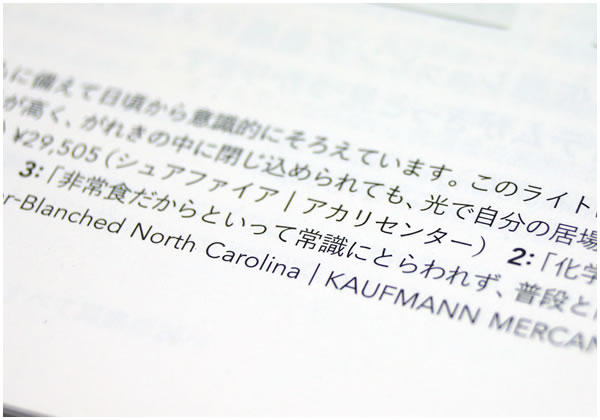 に備えて日頃から意識的にそろえています。このライトに
が高く、がれきの中に閉じ込められても、光で自分の居場
¥29,505(シュアファイア | アカリセンター) 2:「化学
3:「非常食だからといって常識にとらわれず、普段と
er-Blanched North Carolina | KAUFMANN MERCAN